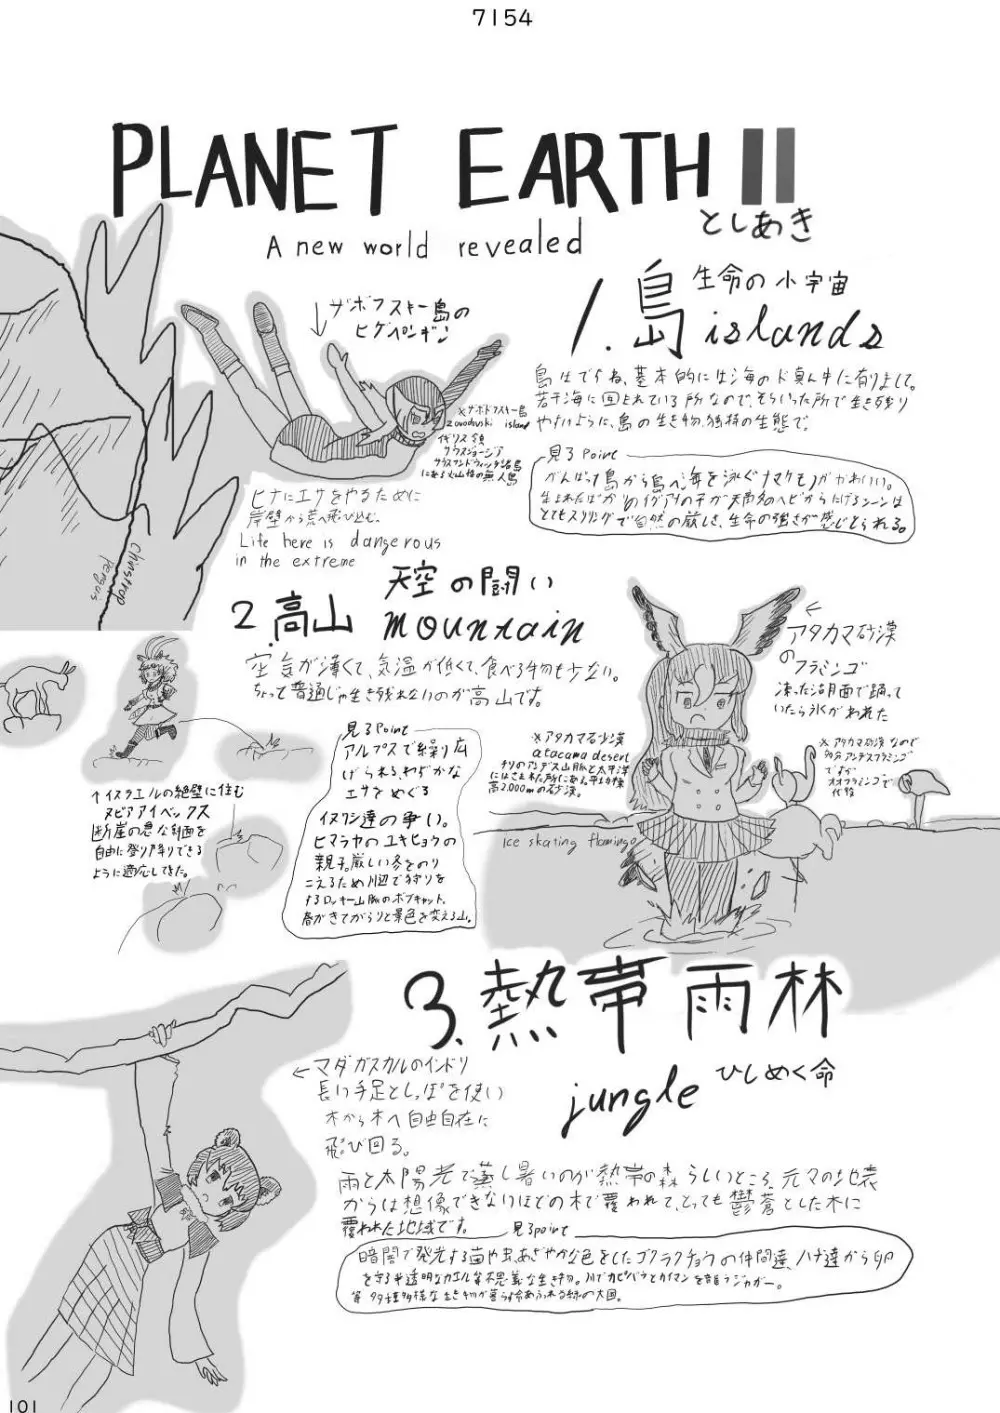 7154
PLANET EARTH II
としあき
A new world revealed
ザボフスキー島の
ヒゲペンギン
1.島 生命の小宇宙
islands
島はですね、基本的には海のド真ん中に有りまして。
若干海に囲まれている所なので、そういった所で生き残り
やすいように、島の生き物、独特の生態で、
見るPoint
がんばって島から島へ海を泳ぐナマケモノがかわいい。
生まれたばかりのイグアナの子が天敵のヘビからにげるシーンは
とてもスリリングで自然の厳しさ、生命の強さが感じとられる。
※ザボドフスキー島
zavodovski island
イギリス領
サウスジョージア
サウスサンドウィッチ諸島
にある火山性の無人島
ヒナにエサをやるために
岸壁から荒へ飛び込む。
Life here is dangerous
in the extreme
chinstrap
penguis
2.高山 天空の闘い
mountain
空気が薄くて、気温が低くて、食べる物も少ない。
ちょっと普通じゃ生き残れないのが高山です。
見るPoint
アルプスで繰り広
げられる、わずかな
エサをめぐる
イヌワシ達の争い。
ヒマラヤのユキヒョウの
親子。厳しい冬をのり
こえるため川辺で狩りを
するロッキー山脈のボブキャット。
春がきてがらりと景色を変える山。
↑イスラエルの絶壁に住む
ヌビアアイベックス
断崖の急な斜面を
自由に登り降りできる
ように適応してきた。
←アタカマ砂漠
のフラミンゴ
凍った沼月面で踊って
いたら氷がわれた
※アタカマ砂漠
atacama desert
チリのアンデス山脈と太平洋
にはさまれた所にある平均標
高2,000mの砂漠。
※アタカマ砂漠なので
多分アンデスフラミンゴ
ですが
オオフラミンゴで
代役
Ice skating flamingo
3.熱帯雨林
jungle ひしめく命
←マダガスカルのインドリ
長い手足としっぽを使い
木から木へ自由自在に
飛び回る。
雨と太陽光で蒸し暑いのが熱帯の森らしいところ、元々の地表
からは想像できないほどの木で覆われて、とっても鬱蒼とした木に
覆われた地域です。
見るpoint
暗闇で発光する菌や虫、あざやかな色をしたゴクラクチョウの仲間達、ハチ達から卵
を守る半透明なカエル等不思議な生き物。川でカピバラとカイマンを狙うジャガー。
等 多種多様な生き物が暮らす命あふれる緑の大国。
101